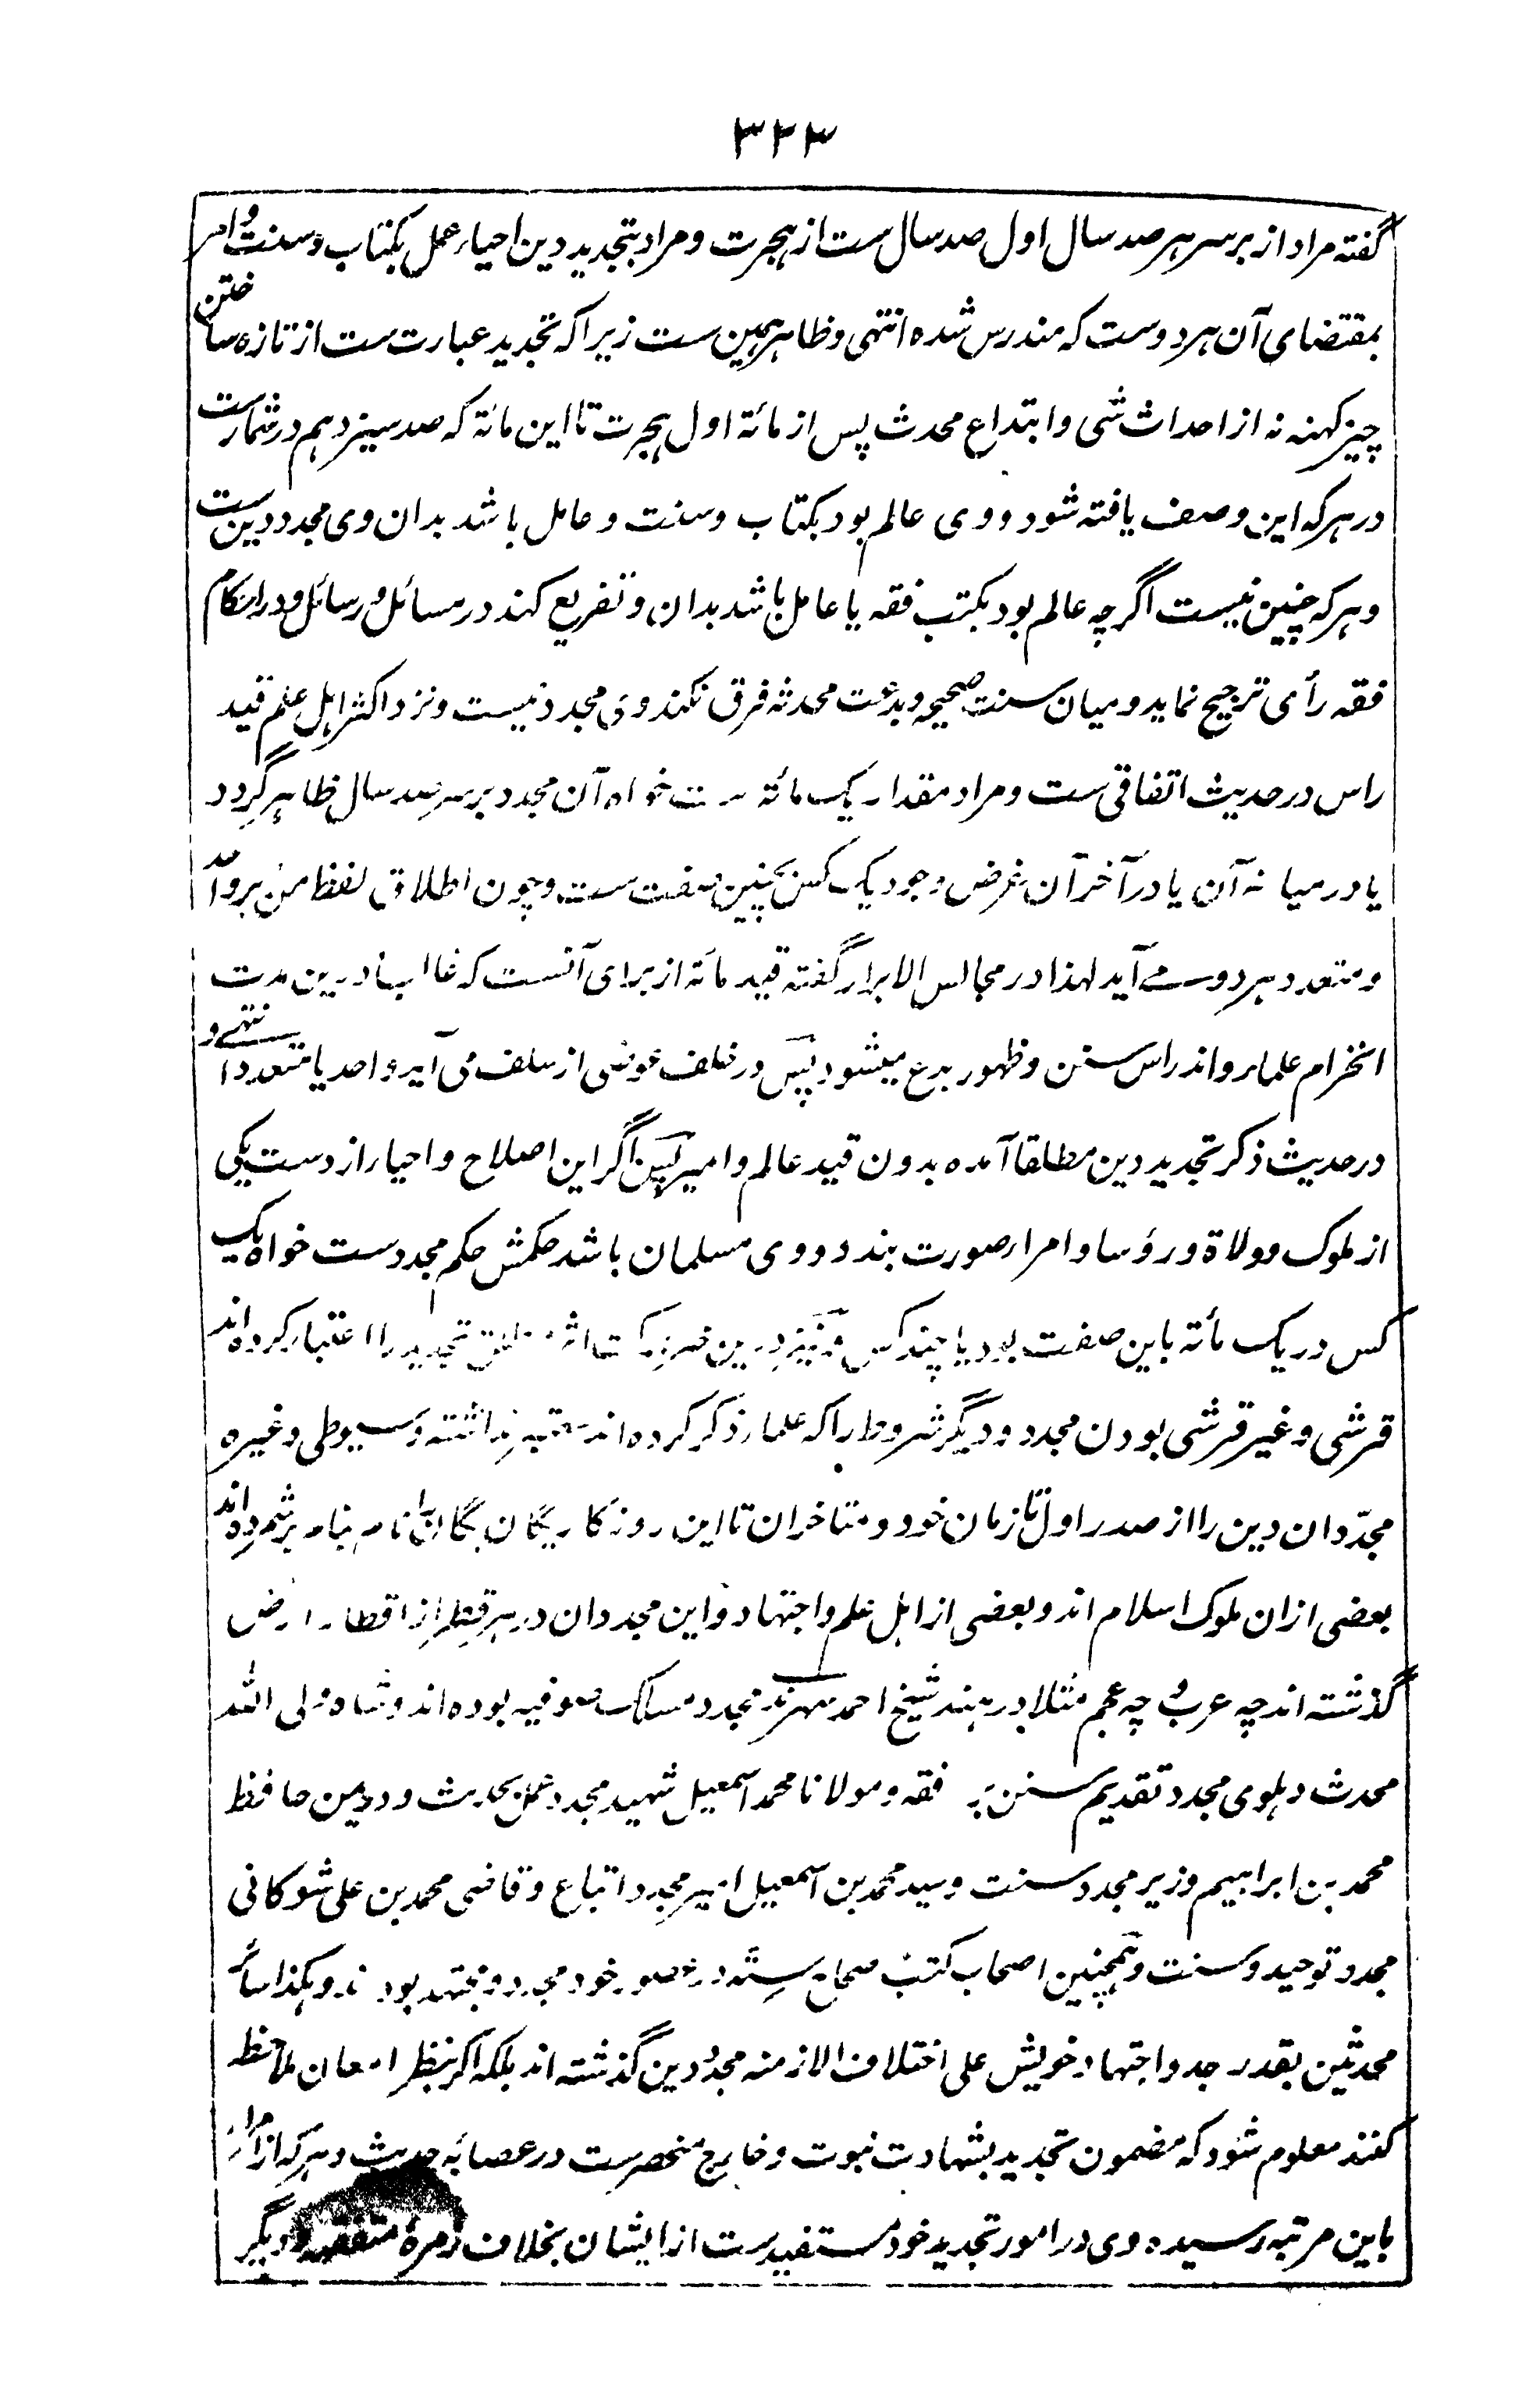 ۳۲۳
گفته مراد از برسر هر صد سال اول صد سال ست از هجرت و مراد بتجدید دین احیاء عمل بکتاب و سنت و امر
بمقتضای آن هر دوست که مندرس شده انتهی و ظاهر همین ست زیرا که تجدید عبارت ست از تازه ساختن
چیز کهنه نه از احداث شی و ابتداع محدث پس از مائة اول هجرت تا این مائة که صد سیزدهم در شمارست
در هر که این وصف یافته شود و وی عالم بود بکتاب و سنت و عامل باشد بدان وی مجدد دین ست
و هر که چنین نیست اگرچه عالم بود بکتب فقه یا عامل باشد بدان و تفریع کند در مسائل و رسائل و در احکام
فقه رأی ترجیح نماید و میان سنت صحیحه و بدعت محدثه فرق نکند وی مجدد نیست و نزد اکثر اهل علم قید
راس در حدیث اتفاقی ست و مراد مقدار یک مائة ست خواه آن مجدد برسر صد سال ظاهر گردد
یا در میانه آن یا در آخر آن غرض وجود یک کس بچنین صفت ست و چون اطلاق لفظ من بر واحد
و متعدد هر دو مے آید لهذا در مجالس الابرار گفته قید مائة از برای آنست که غالبا درین مدت
انخرام علماء و اندراس سنن و ظهور بدع میشود پس در خلف عوضی از سلف می آید واحد یا متعدد انتهے و
در حدیث ذکر تجدید دین مطلقا آمده بدون قید عالم و امیر پس اگر این اصلاح و احیاء از دست یکی
از ملوک و ولاة و رؤسا و امراء صورت بندد و وی مسلمان باشد حکمش حکم مجددست خواه یک
کس در یک مائة باین صفت بود یا چند کس و نیز درین مطلق تجدید را اعتبار کرده اند
قرشی و غیر قرشی بودن مجدد و دیگر شروط را که علماء ذکر کرده اند معتبر نداشته و سیوطی و غیره
مجددان دین را از صدر اول تا زمان خود و متاخران تا این روزگار یگان یگان را نام بنام برشمرده اند
بعضی ازان ملوک اسلام اند و بعضی از اهل علم و اجتهاد و این مجددان در هر قطر از اقطار ارض
گذشته اند چه عرب و چه عجم مثلا در هند شیخ احمد سهرندی مجدد مسالک صوفیه بوده اند و شاه ولی الله
محدث دهلوی مجدد تقدیم سنن بر فقه و مولانا محمد اسمعیل شهید مجدد عمل بحدیث و در یمن حافظ
محمد بن ابراهیم وزیر مجدد سنت و سید محمد بن اسمعیل امیر مجدد اتباع و قاضی محمد بن علی شوکانی
مجدد توحید و سنت و همچنین اصحاب کتب صحاح سته در عصور خود مجدد و مجتهد بودند و هکذا سائر
محدثین بقدر جد و اجتهاد خویش علی اختلاف الازمنه مجددین گذشته اند بلکه اگر بنظر امعان ملاحظه
کنند معلوم شود که مضمون تجدید بشهادت نبوت و خارج منحصرست در عصابه حدیث و هر که از امراء
باین مرتبه رسیده وی در امور تجدید خود مستفیدست از ایشان بخلاف زمره متفقهه و دیگر